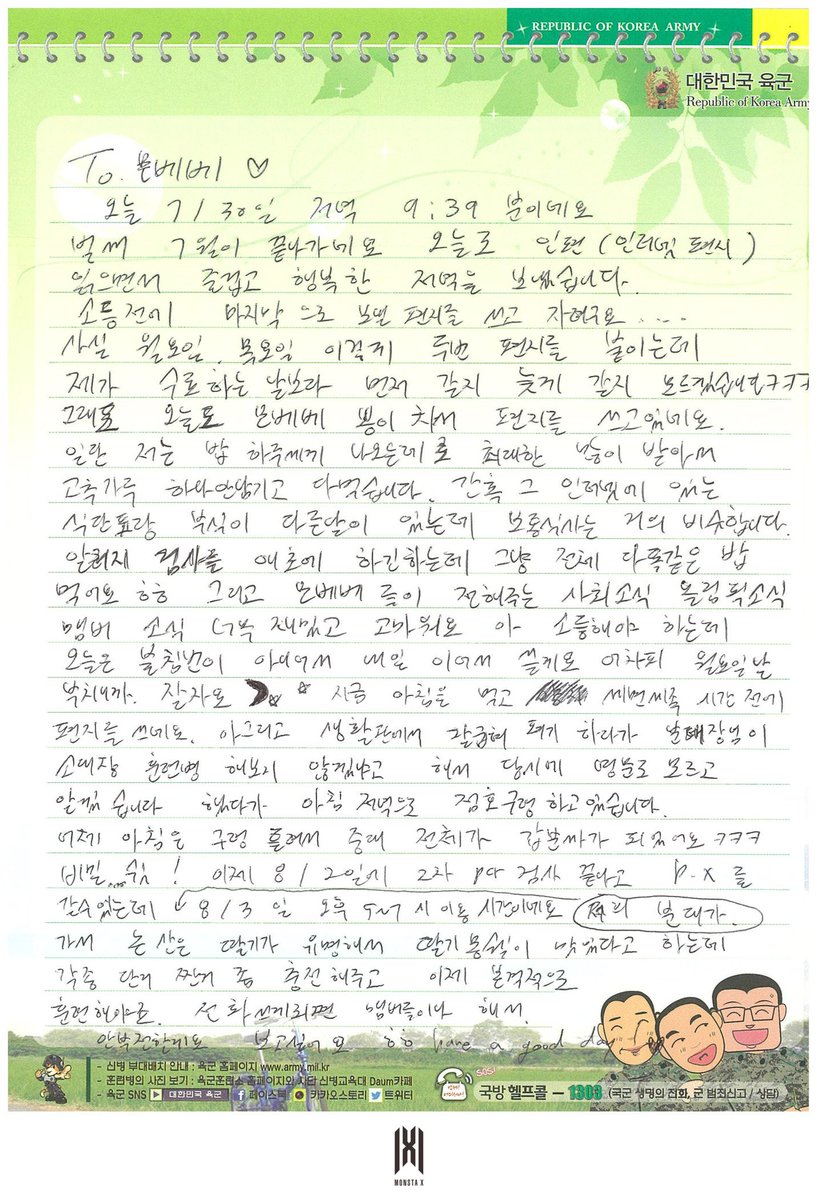 REPUBLIC OF KOREA ARMY
대한민국 육군
Republic of Korea Army
To. 몬베베 ♡
오늘 7/30일 저녁 9:39 분이네요
벌써 7월이 끝나가네요 오늘도 인편(인터넷 편지)
읽으면서 즐겁고 행복한 저녁을 보냈습니다.
소등전에 마지막으로 보낼 편지를 쓰고 자려구요....
사실 월요일, 목요일 이렇게 두번 편지를 붙이는데
제가 수료하는 날보다 먼저 갈지 늦게 갈지 모르겠습니다ㅋㅋㅋ
그래도 오늘도 몬베베 뽕이 차서 편지를 쓰고있네요.
일단 저는 밥 하루세끼 나오는데로 최대한 많이 받아서
고춧가루 하나안남기고 다먹습니다. 간혹 그 인터넷에 있는
식단표랑 부식이 다른날이 있는데 보통식사는 거의 비슷합니다.
알러지 검사를 애초에 하긴하는데 그냥 전체 다똑같은 밥
먹어요 ㅎㅎ 그리고 몬베베 들이 전해주는 사회소식 올림픽소식
멤버 소식 너무 재밌고 고마워요 아 소등해야 하는데
오늘은 불침번이 아니어서 내일 이어서 쓸게요 어차피 월요일날
부치니까. 잘자요 지금 아침을 먹고 세면세족 시간 전에
편지를 쓰네요. 아그리고 생활관에서 팔굽혀 펴기 하다가 분대장님이
소대장 훈련병 해보지 않겠냐고 해서 당시에 멋모르고
알겠습니다 했다가 아침 저녁으로 점호구령 하고있습니다.
어제 아침은 구령 틀려서 중대 전체가 갑분싸가 되었어요ㅋㅋㅋ
비밀...쉿! 이제 8/2일에 2차 pcr 검사 끝나고 P.X를
갈수있는데 8/3일 오후 시 이용 시간이네요 저희 분대가.
가서 논산은 딸기가 유명해서 딸기몽쉘이 맛있다고 하는데
각종 단거 짠거 좀 충전해주고 이제 본격적으로
훈련해야죠. 전화 쓰게되면 멤버들이나 해서.
안부전할게요 보고싶어요 ㅎㅎ have a good day
- 신병 부대배치 안내 : 육군 홈페이지 www.army.mil.kr
- 훈련병의 사진 보기 : 육군훈련소 홈페이지와 사단 신병교육대 Daum카페
- 육군 SNS 대한민국 육군 페이스북 카카오스토리 트위터
SOS!
국방 헬프콜 - 1303 (국군 생명의 전화, 군 범죄신고 / 상담)
MONSTA X